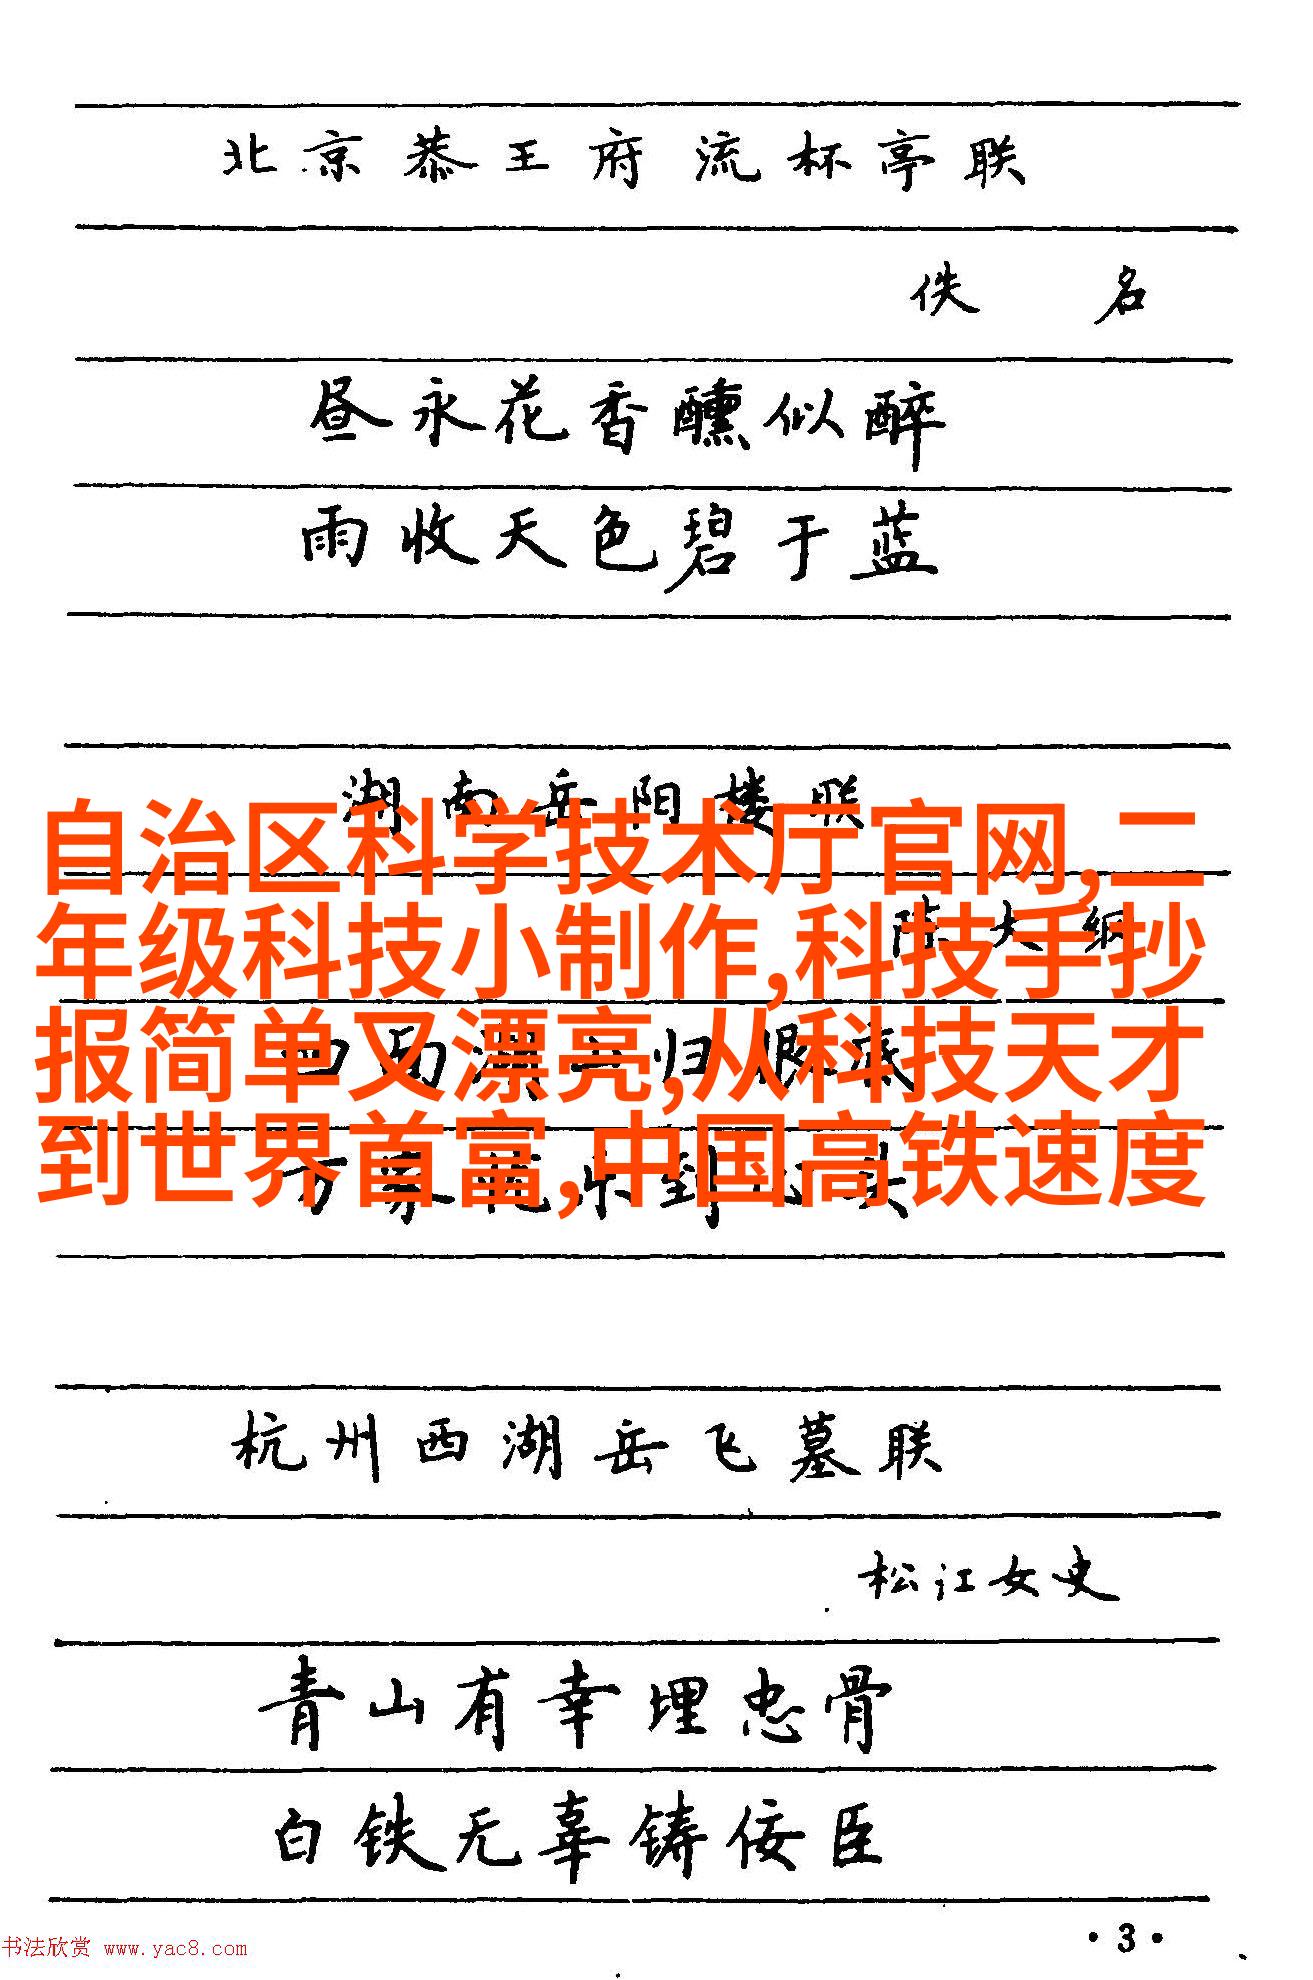 北京恭王府流杯亭联
佚名
昼永花香醺似醉
雨收天色碧于蓝
湖南岳阳楼联
自治区科学技术厅官网,二
陈大纲
年级科技小制作,科技手抄
报简单又漂亮,从科技天才
到世界首富,中国高铁速度
杭州西湖岳飞墓联
松江女史
青山有幸埋忠骨
白铁无辜铸佞臣
·3·
书法欣赏 www.yac8.com